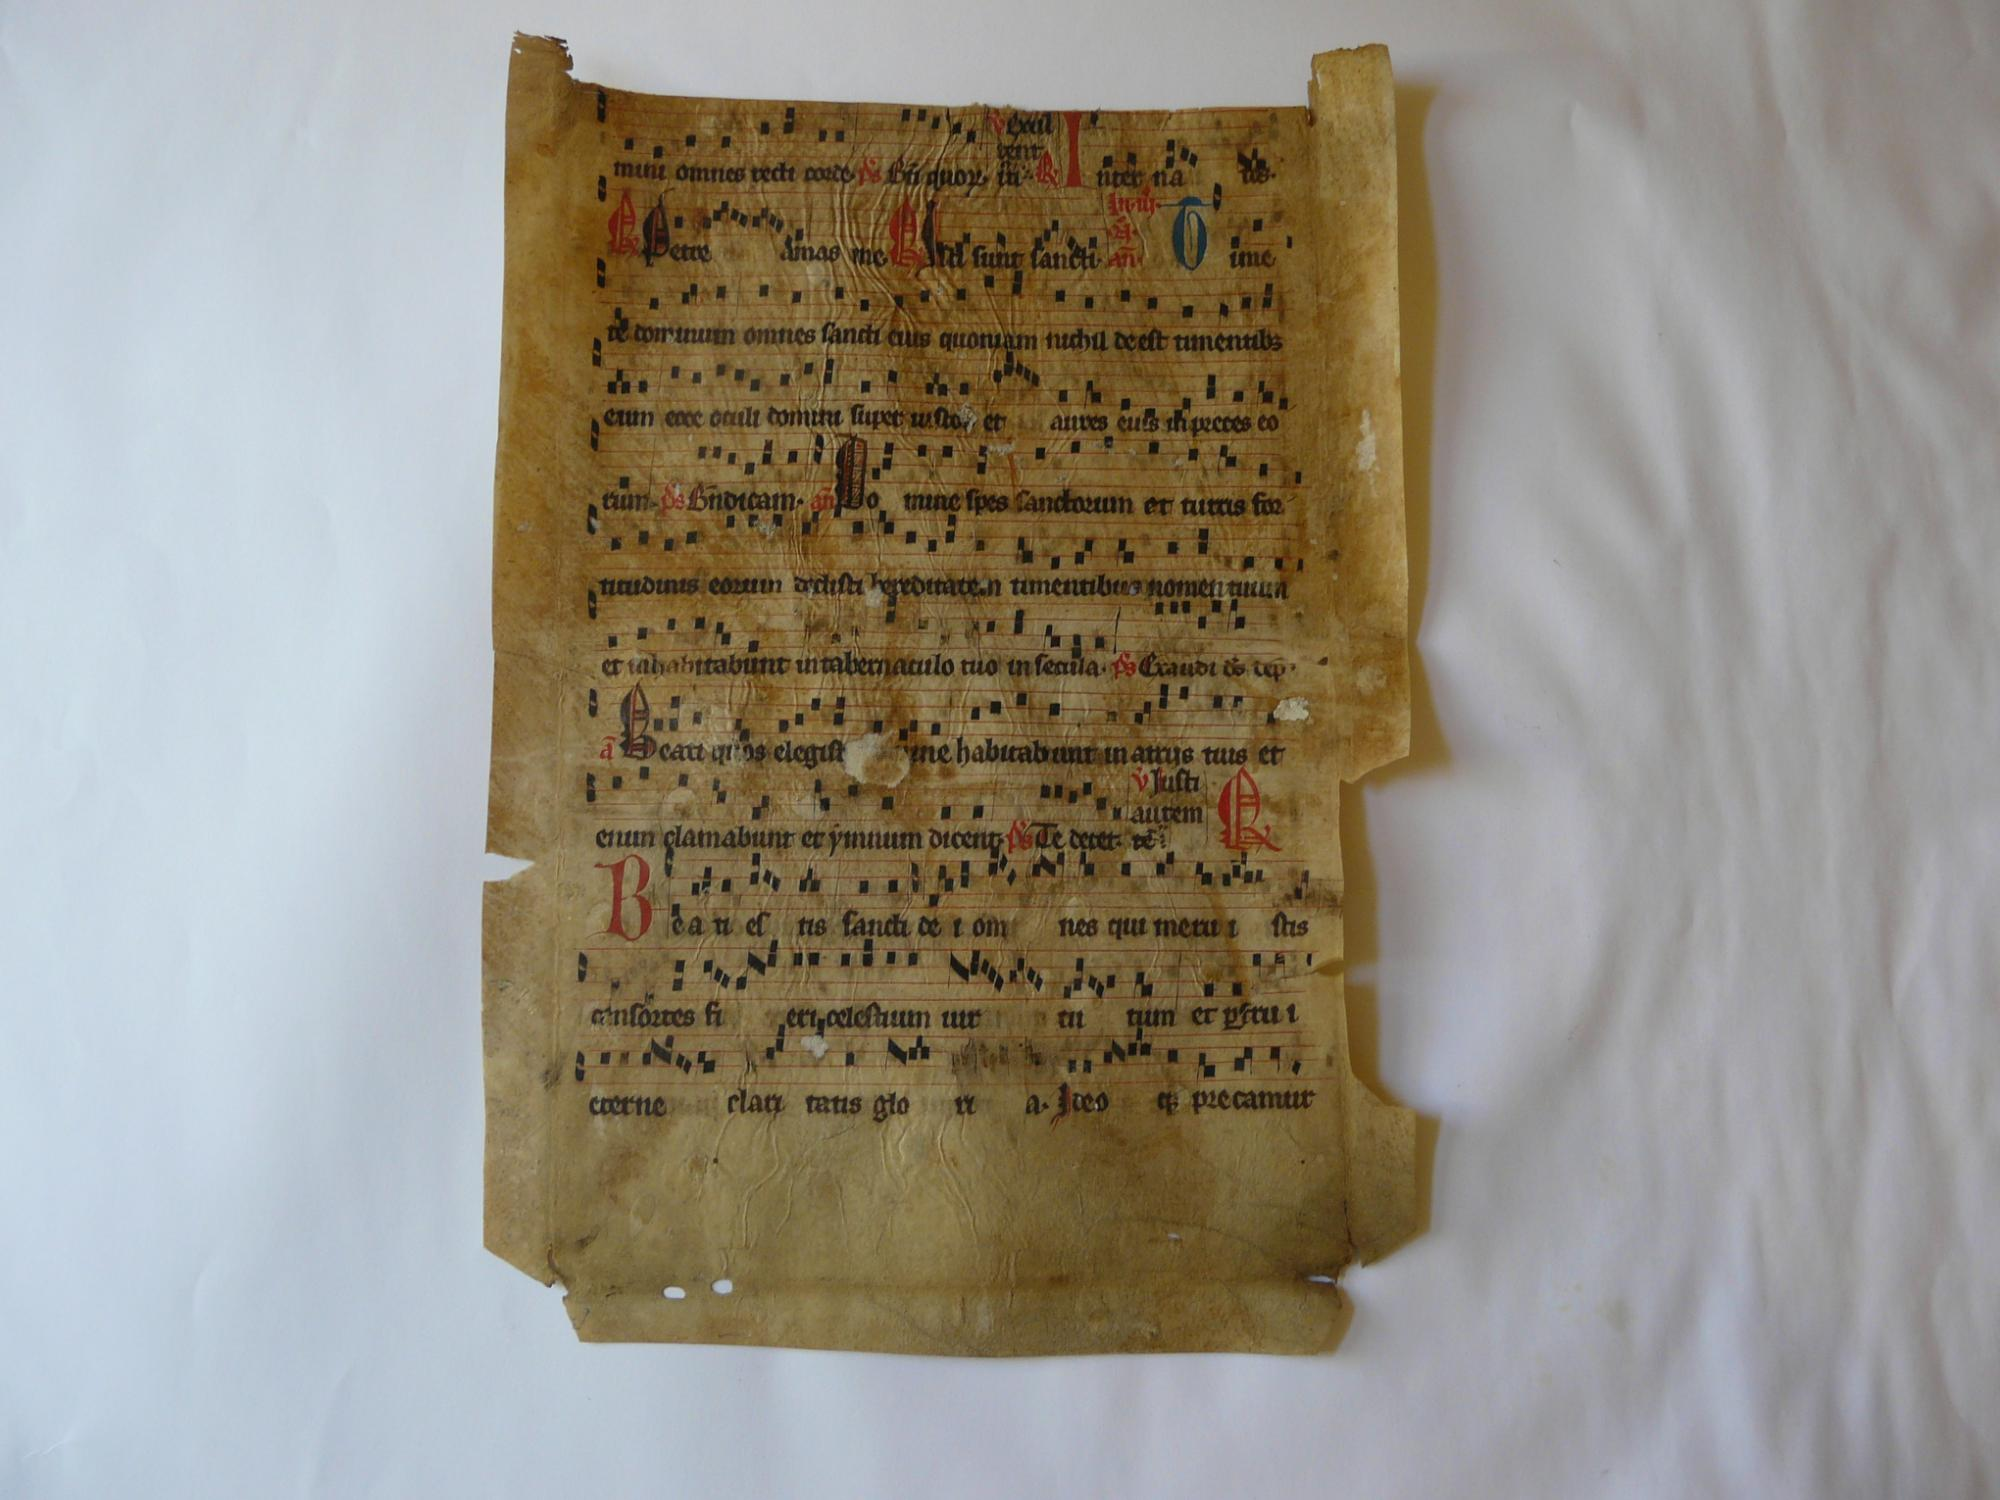 v̕ Exul
tent
mini omnes recti corde ps Bn̄ quoꝝ iu̅ ℟ Inter na tis.
℟ Petre amas me ℟ Isti sunt sancti In iij. N̄. an̄ Time
te dominum omnes sancti eius quoniam nichil deest timentibꝫ
eum ecce oculi domini super iustos et aures eius in preces eo
rum. ps Bn̄dicam. an̄ Do mine spes sanctorum et turris for
titudinis eorum dedisti hereditatem timentibus nomen tuum
et inhabitabunt in tabernaculo tuo in secula. ps Exaudi ds dep̄.
a̅ Beati quos elegisti habitabunt in atrijs tuis et
v̕ Justi
autem
enim clamabunt et ẏmnum dicent. ps Te decet. te̅ ℟
Be a ti es tis sancti de i om nes qui meru i stis
consortes fi eri celestium uir tu tum et ꝑfrui
eterne clari tatis glo ri a. Ideo qꝫ precamur